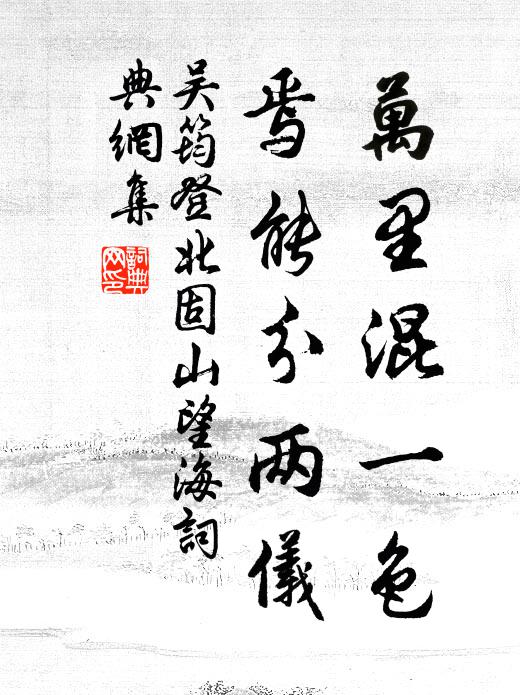 萬里混一色
焉能分两儀
吴筠登北固山望海詞
典網集
詞典
网印